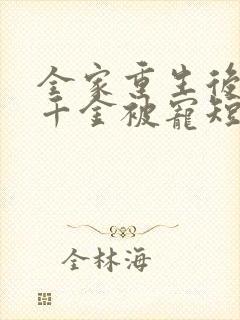 全家重生後
千金被寵短
全林海